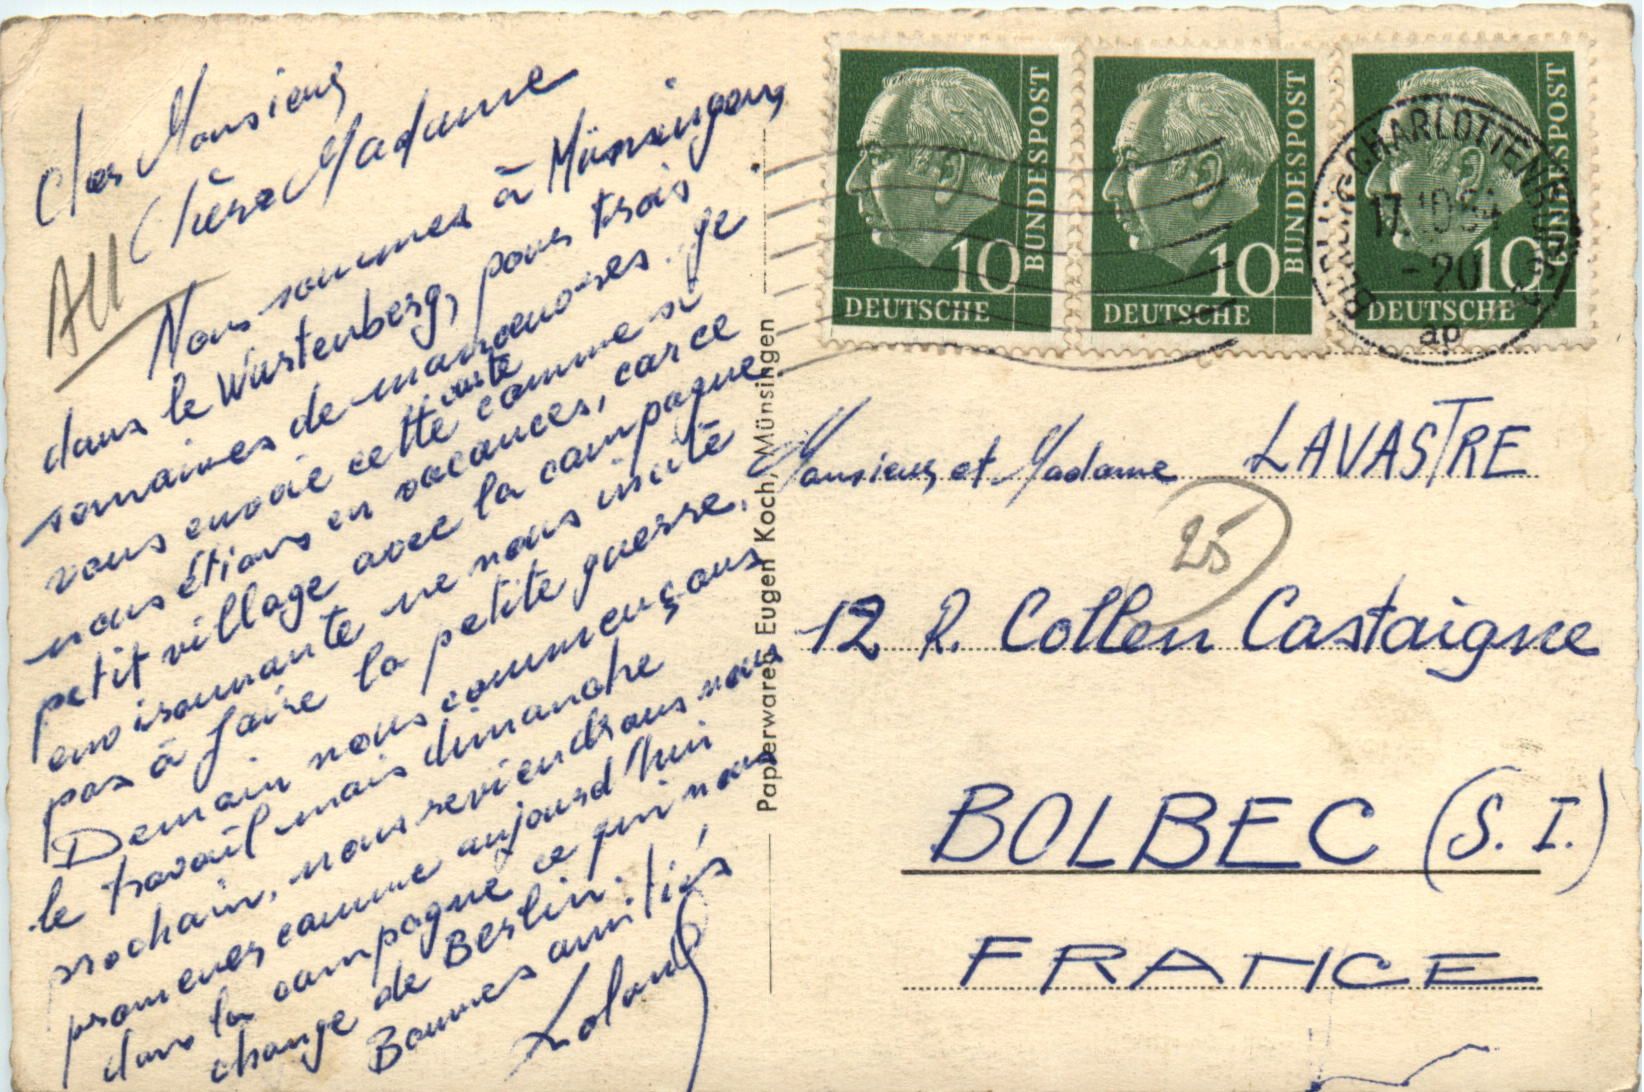 Cher Monsieur
Chère Madame
Nous sommes à Münsingen,
dans le Wurtenberg, pour trois
semaines de manoeuvres. Je
vous envoie cette carte comme si
nous étions en vacances, car ce
petit village avec la campagne
environnante ne nous incite
pas à faire la petite guerre.
Demain nous commençons
le travail mais dimanche
prochain, nous reviendrons nous
promener comme aujourd'hui
dans la campagne ce qui nous
change de Berlin.
Bonnes amitiés
All
Papierwaren Eugen Koch, Münsingen
10 DEUTSCHE BUNDESPOST
10 DEUTSCHE BUNDESPOST
10 DEUTSCHE BUNDESPOST
CHARLOTTENBURG
-20
ap
Monsieur et Madame LAVASTRE
25
12 R. Collen Castaigne
BOLBEC (S. I.)
FRANCE